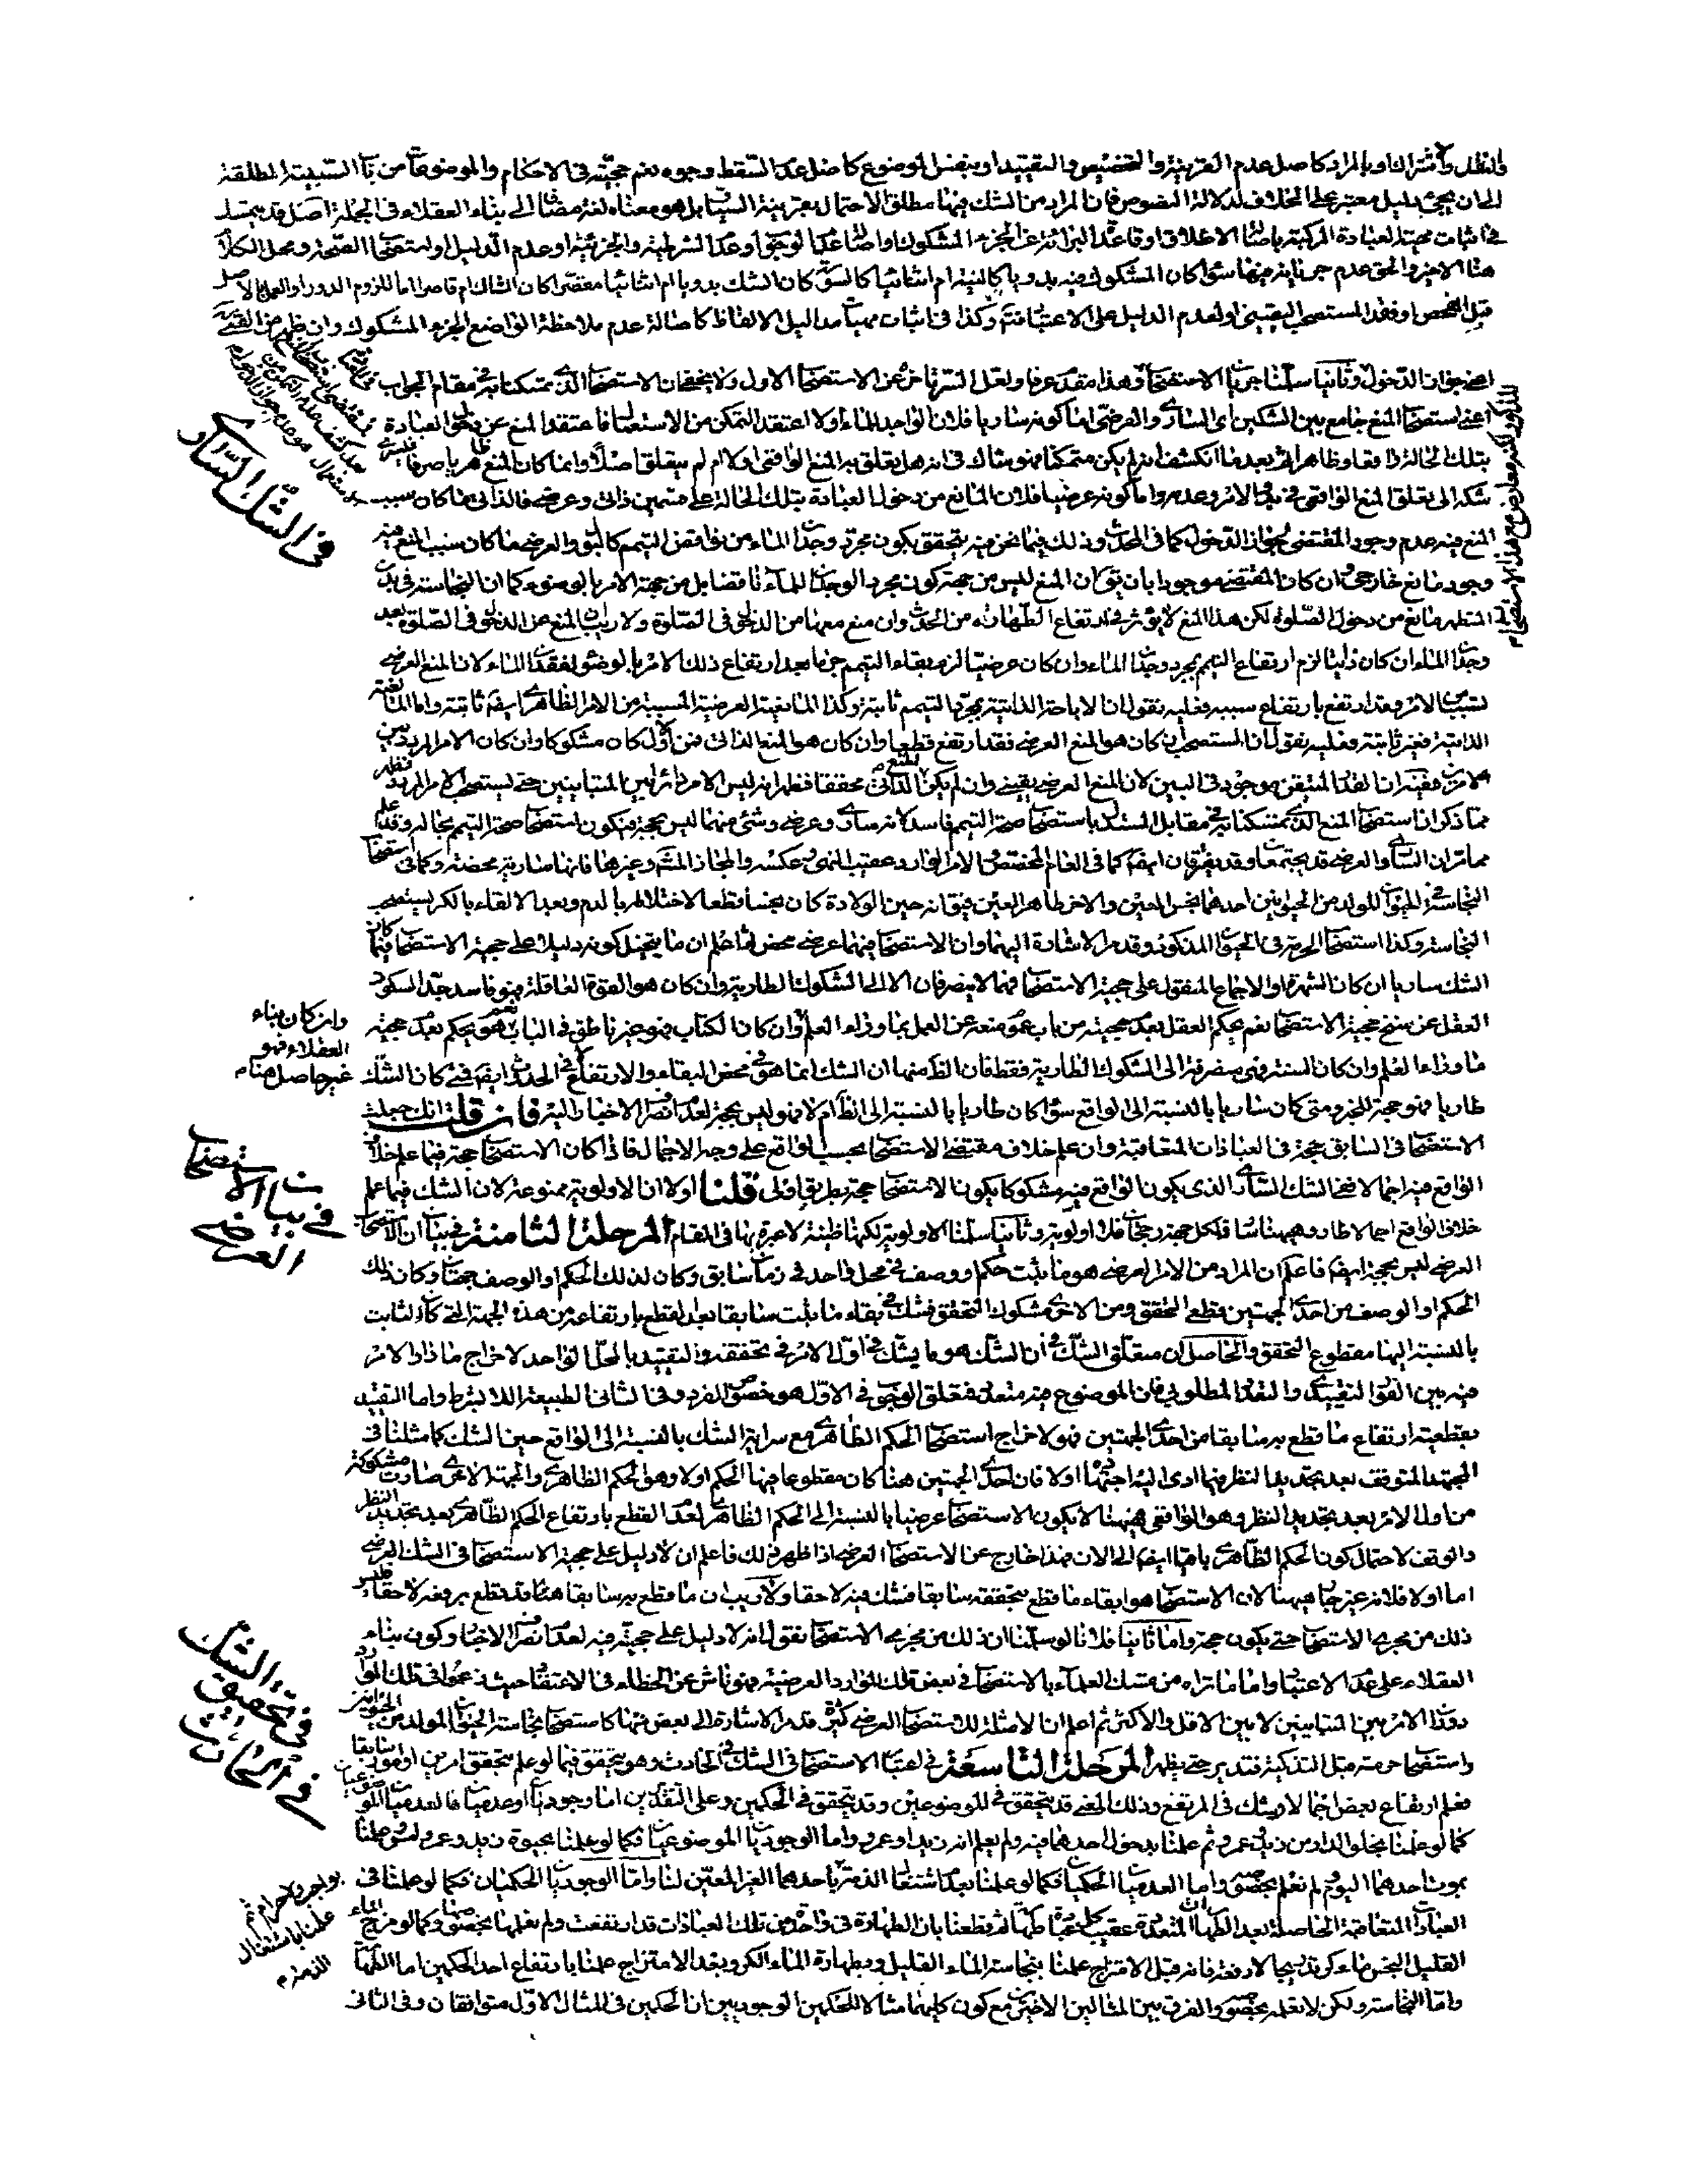 والنقل والاشتراك او بالمراد كاصل عدم القرينة والتخصيص والتقييد او بنفس الموضوع كاصل عدم السقط وجوه نعم حجيته فى الاحكام والموضوعات من باب السببية المطلقة
الى ان يجئ دليل معتبر على الخلاف لدلالة النصوص فان المراد من الشك فيها مطلق الاحتمال بقرينة السياق بل هو معناه لغة مضافا الى بناء العقلاء فى الجملة اصل قد يتمسك
فى اثبات صحة العبادة المركبة باصالة الاطلاق او قاعدة البرائة عن الجزء المشكوك واصالة عدم الوجوب او عدم الشرطية والجزئية او عدم الدليل او استصحاب الصحة ومحل الكلام
هنا الاخير والحق عدم جريانه فيها سواء كان المشكوك فيه بدويا كالنية ام اثنائيا كالسورة كان الشك بدويا ام اثنائيا مقصرا كان الشاك ام قاصرا اما للزوم الدور او العمل بالاصل
قبل الفحص او فقد المستصحب اليقينى او لعدم الدليل على الاعتبار فتم وكذا فى اثبات مهيات مداليل الالفاظ كاصالة عدم ملاحظة الواضع الجزء المشكوك وان ظهر من
اعنى جواز الدخول وثانيا سلمنا جريان الاستصحاب وهذا مقدم عرفا ولعل السر تاخره عن الاستصحاب الاول ولا يخفى ان الاستصحاب الذى تمسكنا به فى مقام الجواب
اعنى استصحاب المنع جامع بين الشكين اى السارى والعرضى اما كونه ساريا فلان الواجد للماء اولا اعتقد التمكن من الاستعمال فاعتقد المنع عن دخول العبادة
بتلك الحالة واقعا وظاهرا ثم بعد ما انكشف انه لم يكن متمكنا فهو شاك فى انه هل يتعلق به المنع الواقعى اولا ام لم يتعلق اصلا وانما كان المنع ظاهريا صرفا
شكه الى تعلق المنع الواقعى فى بدو الامر وعدمه واما كونه عرضيا فلان المانع من دخول العبادة بتلك الحالة على قسمين ذاتى وعرضى فالذاتى ما كان سبب
المنع فيه عدم وجود المقتضى لجواز الدخول كما فى المحدث وذلك فيما نحن فيه يتحقق بكون مجرد وجدان الماء من نواقض التيمم كالبول والعرضى ما كان سبب المنع فيه
وجود مانع خارجى وان كان المقتضى موجودا بان يق ان المنع ليس من جهة كون مجرد الوجدان للماء ناقضا بل من جهة الامر بالوضوء كما ان النجاسة فى بدن
المتطهر مانع من دخول الصلوة لكن هذا المنع لا يؤثر فى ارتفاع الطهارة من الحدث وان منع معها من الدخول فى الصلوة ولا ريب ان المنع عن الدخول فى الصلوة بعد
وجدان الماء ان كان ذاتيا لزم ارتفاع التيمم بمجرد وجدان الماء وان كان عرضيا لزم بقاء التيمم جزما بعد ارتفاع ذلك الامر بالوضوء لفقدان الماء لان المنع العرضى
تسبب من الامر وقد ارتفع بارتفاع سببه وعليه نقول ان الاباحة الذاتية بمجرد التيمم ثابتة وكذا المانعية العرضية المسببة من الامر الظاهرى ايضا ثابتة واما المانعية
الذاتية فغير ثابتة وعليه نقول ان المستصحب ان كان هو المنع العرضى فقد ارتفع قطعا وان كان هو المنع الذاتى فمن الاول كان مشكوكا وان كان الامر المردد بين
الامرين ففيه ان القدر المتيقن موجود فى البين لان المنع العرضى يقينى وان لم يكن المنع الذاتى محققا فظهر انه ليس الامر دائرا بين المتباينين حتى يستصحب الامر المردد فظهر
مما ذكر ان استصحاب المنع الذى تمسكنا به فى مقابل المستدل باستصحاب صحة التيمم فاسد لانه سارى وعرضى وشئ منهما ليس بحجة فيكون استصحاب صحة التيمم بحاله وقد علم
مما مر ان السارى والعرضى قد يجتمعان وقد يفترقان ايضا كما فى العام المخصص والامر الوارد عقيب النهى وعكسه والمجاز المشهور وغيرها فانها سارية محضة وكما فى استصحاب
النجاسة فى الحيوان المتولد من الحيوانين احدهما نجس العين والاخر طاهر العين فيق انه حين الولادة كان نجسا قطعا لاختلاطه بالدم وبعد الالقاء بالكر يستصحب
النجاسة وكذا استصحاب الحرمة فى الحيوان المذكور وقد مر الاشارة اليهما وان الاستصحاب فيهما عرضى محض ثم اعلم ان ما يتخيل كونه دليلا على حجية الاستصحاب فيما كان
الشك ساريا ان كان الشهرة او الاجماع المنقول على حجية الاستصحاب فهما لا ينصرفان الا الى الشكوك الطارية وان كان هو القوة العاقلة فهو فاسد جدا لسكوت
العقل عن سنخ حجية الاستصحاب نعم يحكم العقل بعدم حجيته من باب عموم منعه عن العمل بما وراء العلم وان كان الكتاب فهو غير ناطق فى الباب نعم هو يحكم بعدم حجية
ما وراء العلم وان كان السنة فهى منصرفة الى الشكوك الطارية فقط فان الظ منها ان الشك انما هو فى محض البقاء والارتفاع فى الحدث ايضا فمتى كان الشك
طاريا فهو حجة للخبر ومتى كان ساريا بالنسبة الى الواقع سواء كان طاريا بالنسبة الى الظاهر ام لا فهو ليس بحجة لعدم انصراف الاخبار اليه فان قلت انك جعلت
الاستصحاب فى السابق حجة فى العبادات المتعاقبة وان علم خلاف مقتضى الاستصحاب بحسب الواقع على وجه الاجمال فاذا كان الاستصحاب حجة فيما علم خلاف
الواقع فيه اجمالا ففى الشك السارى الذى يكون الواقع فيه مشكوكا يكون الاستصحاب حجة بطريق اولى قلنا اولا ان الاولوية ممنوعة لان الشك فيما علم
خلاف الواقع اجمالا طار وههنا سار فلكل جهة رجحان فلا اولوية وثانيا سلمنا الاولوية لكنها ظنية لا عبرة بها فى المقام المرحلة الثامنة فى بيان ان الاستصحاب
العرضى ليس بحجة ايضا فاعلم ان المراد من الامر العرضى هو ما يثبت حكم او وصف فى محل واحد فى زمان سابق وكان لذلك الحكم او الوصف جهتان وكان ذلك
الحكم او الوصف من احدى الجهتين قطعى التحقق ومن الاخرى مشكوك التحقق فشك فى بقاء ما ثبت سابقا بعد القطع بارتفاعه من هذه الجهة التى كان الثابت
بالنسبة اليها مقطوع التحقق والحاصل ان متعلق الشك فى آن الشك هو ما يشك فى اول الامر فى تحققه والتقييد بالمحل الواحد لاخراج ما دار الامر
فيه بين الفور التقييدى والتعدد المطلوبى فان الموضوع فيه متعدد فمتعلق الوجوب فى الاول هو خصوص الفرد وفى الثانى الطبيعة اللا بشرط واما التقييد
بقطعية ارتفاع ما قطع به سابقا من احدى الجهتين فهو لاخراج استصحاب الحكم الظاهرى مع سراية الشك بالنسبة الى الواقع حين الشك كما مثلنا فى
المجتهد المتوقف بعد تجديد النظر فيما ادى اليه اجتهاده اولا فان احدى الجهتين هنا كان مقطوعا فيها الحكم اولا وهو الحكم الظاهرى والجهة الاخرى صارت مشكوكة
من اول الامر بعد تجديد النظر وهو الواقعى فههنا لا يكون الاستصحاب عرضيا بالنسبة الى الحكم الظاهرى لعدم القطع بارتفاع الحكم الظاهرى بعد تجديد النظر
والوقف لاحتمال كون الحكم الظاهرى باقيا ايضا الى الان فهذا خارج عن الاستصحاب العرضى اذا ظهر ذلك فاعلم ان لا دليل على حجية الاستصحاب فى الشك العرضى
اما اولا فلانه غير جار ههنا لان الاستصحاب هو ابقاء ما قطع بتحققه سابقا فشك فيه لاحقا ولا ريب ان ما قطع به سابقا هنا قد قطع برفعه لاحقا فليس
ذلك من مجرى الاستصحاب حتى يكون حجة واما ثانيا فلانا لو سلمنا ان ذلك من مجرى الاستصحاب نقول انه لا دليل على حجيته فيه لعدم انصراف الاخبار وكون بناء
العقلاء على عدم الاعتبار واما ما تراه من تمسك العلماء بالاستصحاب فى بعض تلك الموارد العرضية فهو ناش عن الخطاء فى الاعتقاد حيث زعموا فى تلك الموارد
دوران الامر بين المتباينين لا بين الاقل والاكثر ثم اعلم ان الامثلة للاستصحاب العرضى كثيرة قد مر الاشارة الى بعض منها كاستصحاب نجاسة الحيوان المتولد من الحيوانين
واستصحاب حرمته قبل التذكية فتدبر حتى يظهر المرحلة التاسعة فى اعتبار الاستصحاب فى الشك فى الحادث وهو يتحقق فيما لو علم بتحقق امرين او امور سابقا
فعلم ارتفاع بعض اجمالا وشك فى المرتفع وذلك المعنى قد يتحقق فى الموضوعين وقد يتحقق فى الحكمين وعلى التقديرين اما وجوديان او عدميان فالعدميان الموضوعيان
كما لو علمنا بخلو الدار من زيد وعمرو ثم علمنا بدخول احدهما فيه ولم يعلم انه زيد او عمرو واما الوجوديان الموضوعيان فكما لو علمنا بحيوة زيد وعمرو ثم علمنا
بموت احدهما اليوم لم نعلم بخصوصه واما العدميان الحكميان فكما لو علمنا بعدم اشتغال الذمة باحدهما الغير المعين لنا واما الوجوديان الحكميان فكما لو علمنا فى
العبادات المتعاقبة الحاصلة بعد الطهارات المتعددة عقيب كل عبادة طهارة ثم قطعنا بان الطهارة فى واحدة من تلك العبادات قد ارتفعت ولم نعلمها بخصوصها وكما لو مزج الماء
القليل النجس بماء كر تدريجا لا دفعة فانه قبل الامتزاج علمنا بنجاسة الماء القليل وبطهارة الماء الكر وبعد الامتزاج علمنا بارتفاع احد الحكمين اما الطهارة
واما النجاسة ولكن لا نعلمه بخصوصه والفرق بين المثالين الاخيرين مع كون كليهما مثالا للحكمين الوجوديين ان الحكمين فى المثال الاول متوافقان وفى الثانى
فى الشك السارى
وان كان بناء
العقلاء فهو
غير حاصل هنا م
فى بيان الاستصحاب
العرضى
فى تحقيق الشك
فى الحادث
بواجب ولا حرام ثم
علمنا باشتغال
الذمة م